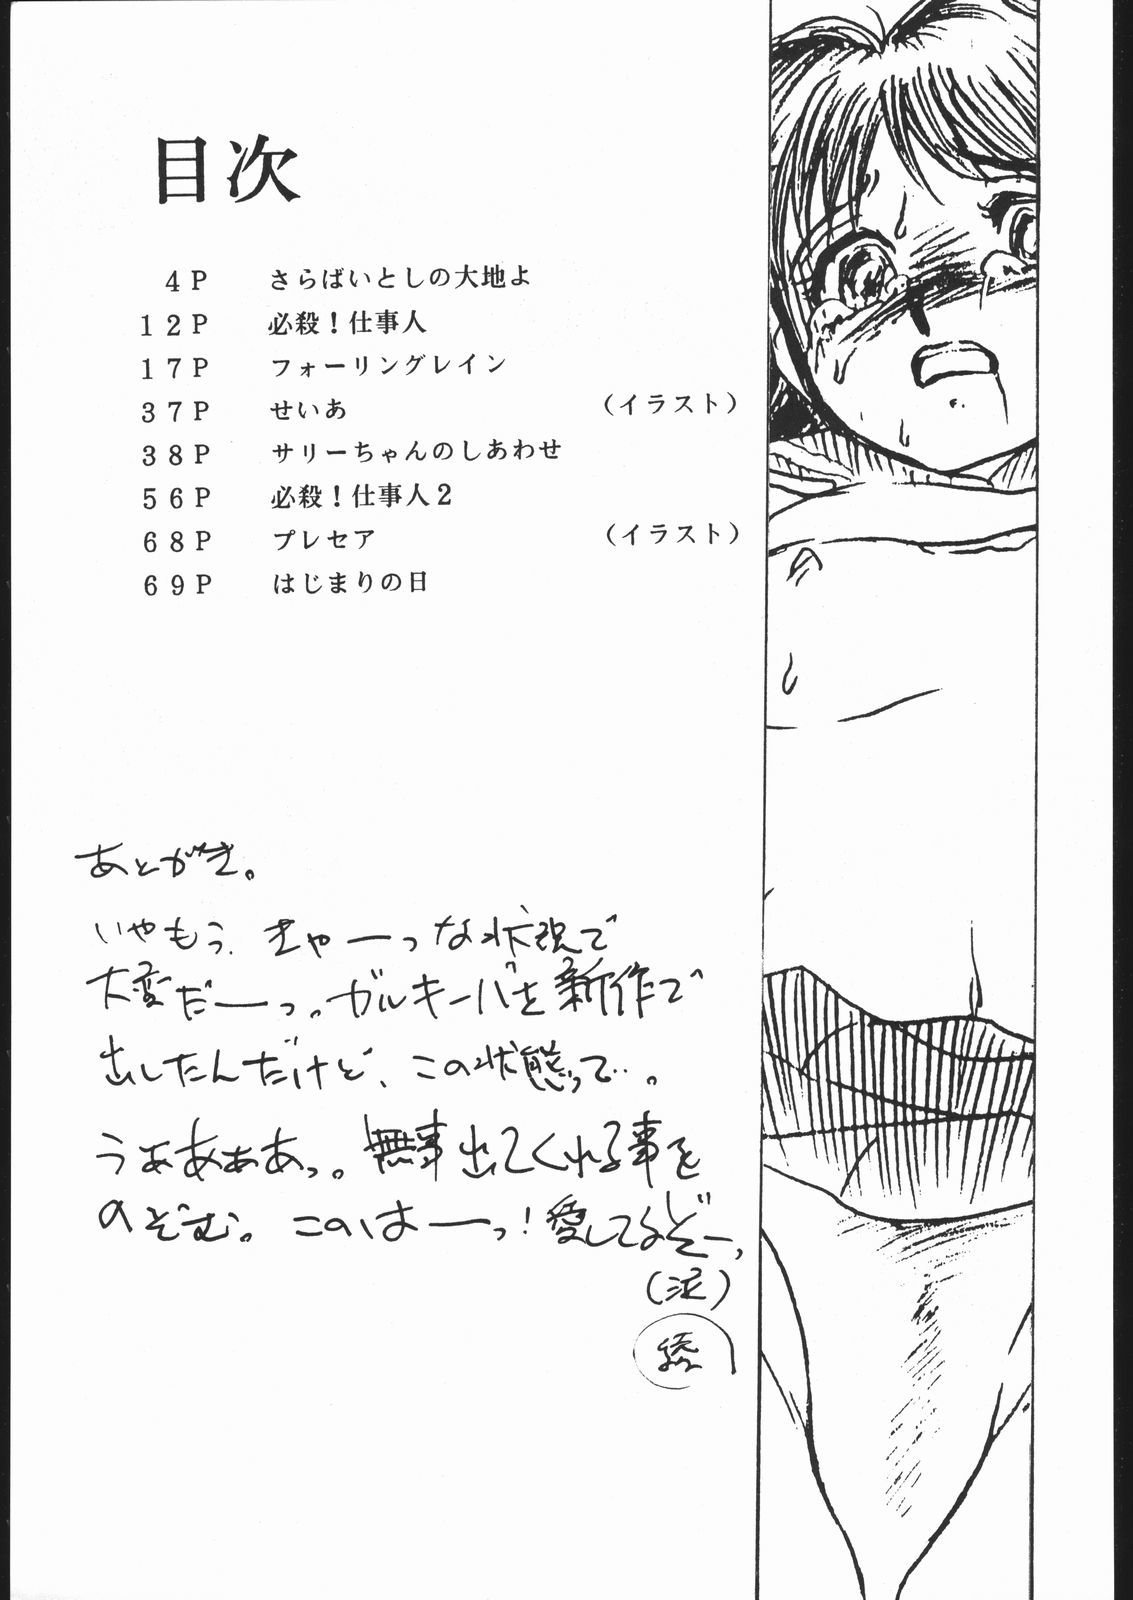 目次
4P さらばいとしの大地よ
12P 必殺！仕事人
17P フォーリングレイン
37P せいあ （イラスト）
38P サリーちゃんのしあわせ
56P 必殺！仕事人２
68P プレセア （イラスト）
69P はじまりの日
あとがき。
いやもう、きゃーっな状況で
大変だーっ。ガルキーバを新作で
出したんだけど、この状態って…。
うぁあぁぁあっ。無事出てくれる事を
のぞむ。このはーっ！愛してるぞー、
（泥）